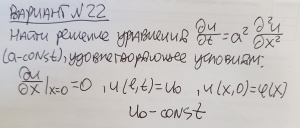 ВАРИАНТ №22
Найти решение уравнения ∂u/∂t = a² ∂²u/∂x²
(a-const), удовлетворяющее условиям:
∂u/∂x|x=0 = 0, u(ℓ,t) = u₀, u(x,0) = φ(x)
u₀ - const